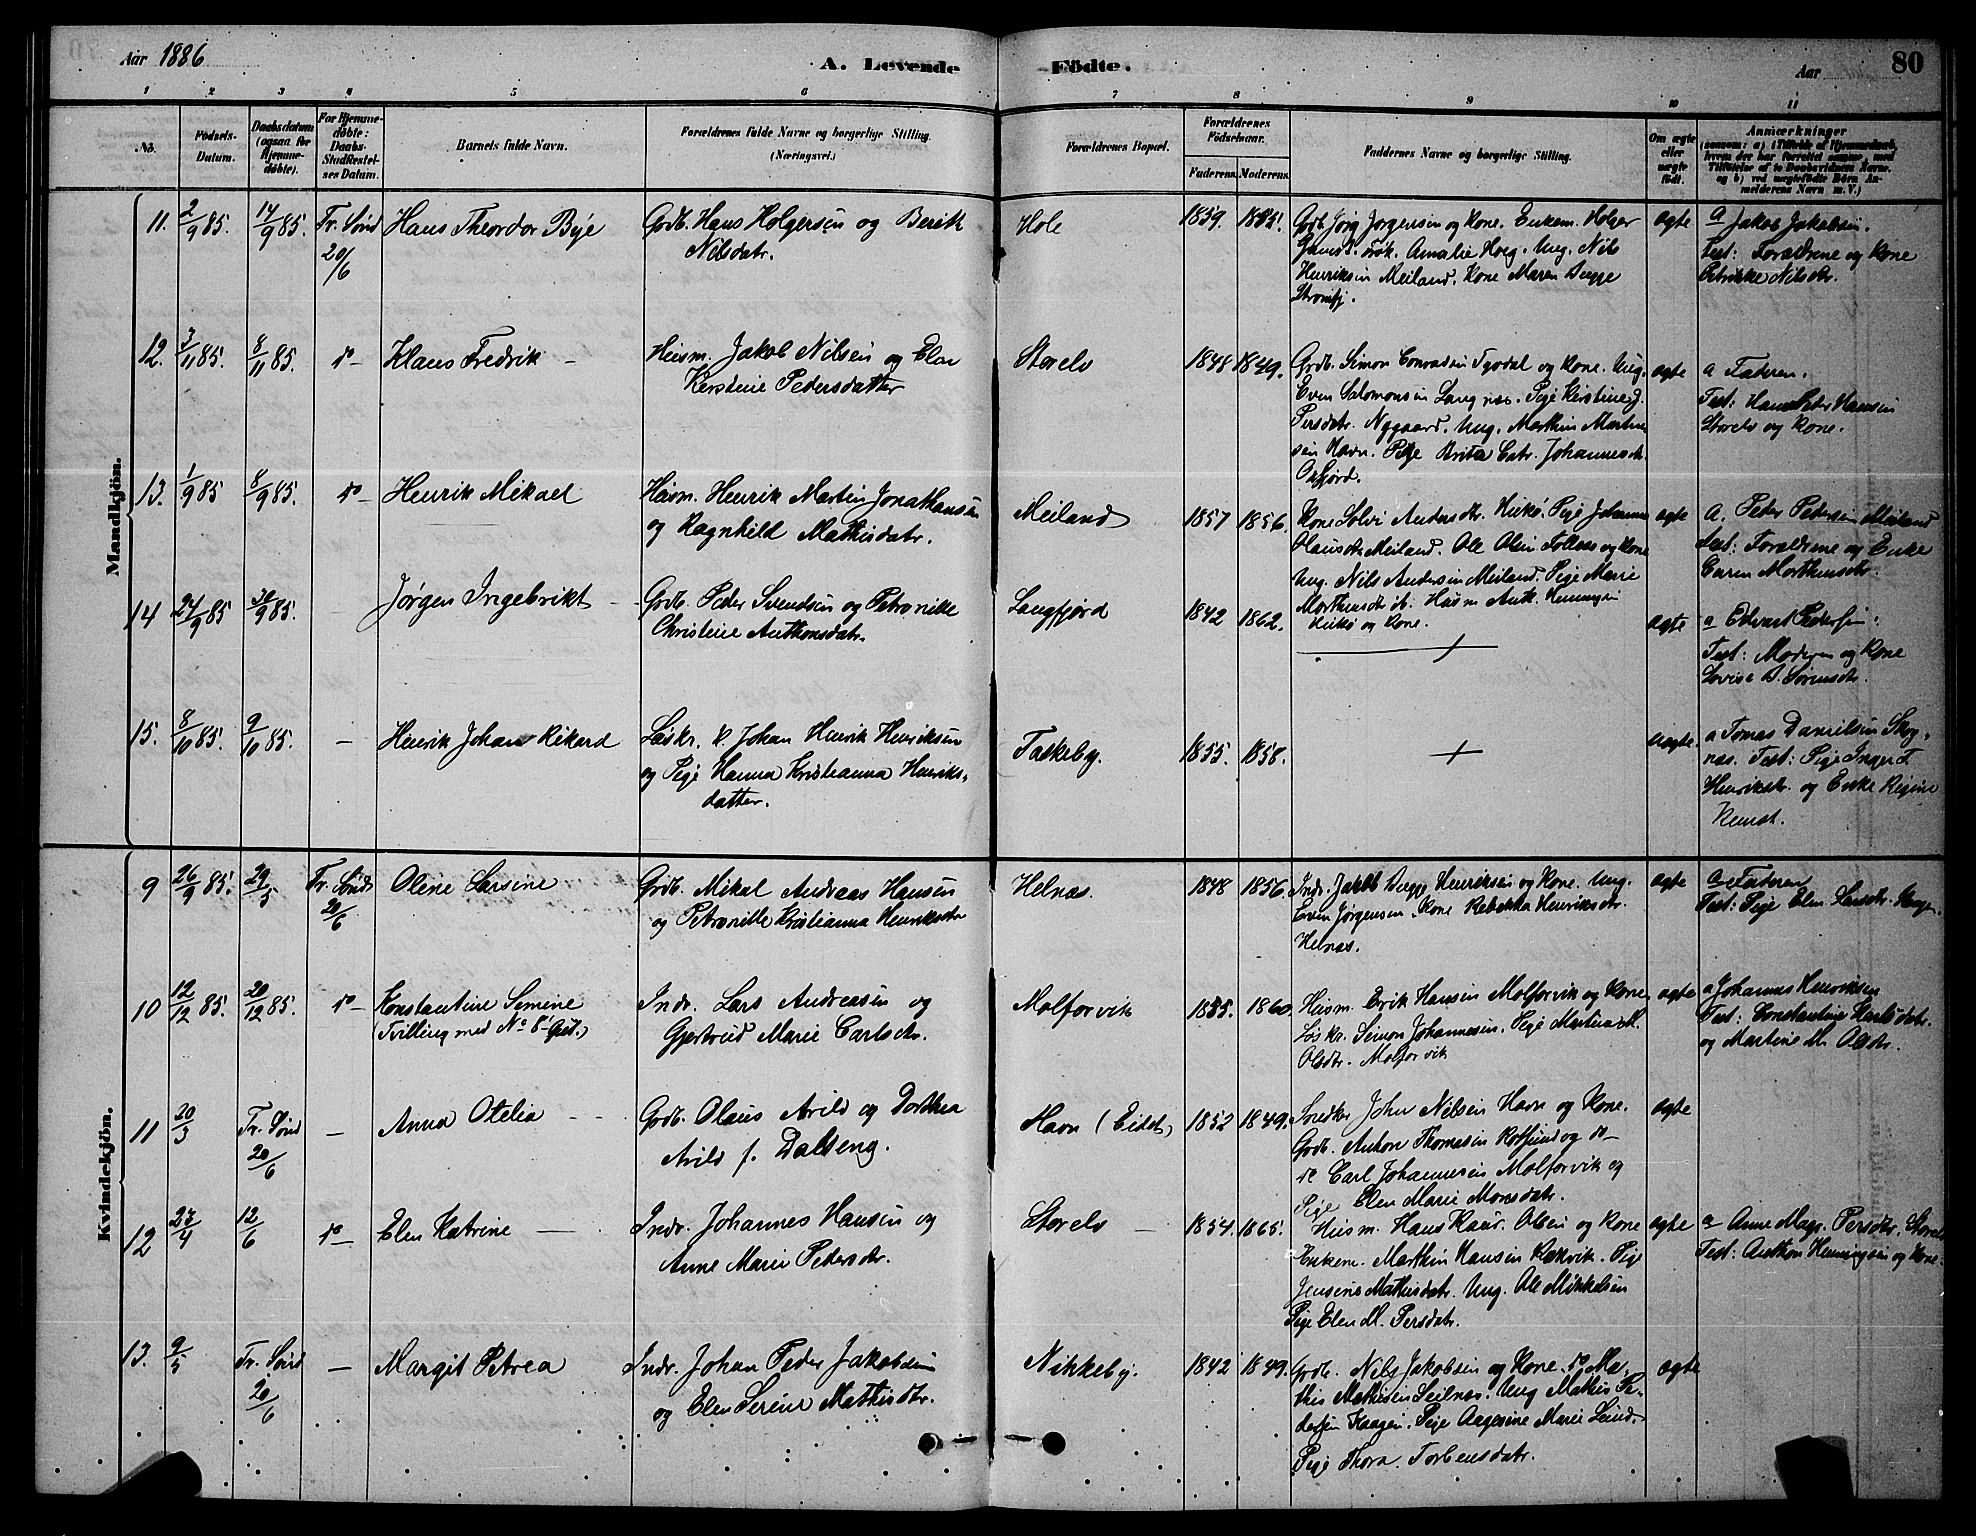 Aar 1886
A. Levende
Födte.
Aar
80
1 2 3 4 5 6 7 8 9 10 11
No.
Födsels-
Datum.
Daabsdatum
(ogsaa for
Hjemme-
døbte).
For Hjemme-
døbte:
Daabs-
Stadfæstel-
ses Datum.
Barnets fulde Navn.
Forældrenes fulde Navne og borgerlige Stilling.
(Næringsvei.)
Forældrenes Bopæl.
Forældrenes
Födselsaar.
Faderens. Moderens.
Faddernes Navne og borgerlige Stilling.
Om ægte
eller
uægte
født.
Anmærkninger
Mandkjön.
11. 2/9 85. 14/9 85. Tr. Sønd 20/6
Hans Theordor Bye
Gdb. Hans Holgersen og Berith
Nilsdatr.
Hole
1859.
Gdb. Jørg Jørgensen og Kone. Enkem. Holger
Frøk. Amalie Hoeg. Ung. Nils
Henriksen Meiland. Kone Maren Bugge
Strømfj.
ægte
a Jakob Jakobsen.
Test: Forældrene og Kone
Petrikke Nilsdtr.
12. 3/11 85. 8/11 85. do
Klaus Fredrik
Husm. Jakob Nilsen og Elen
Kerstine Pedersdatter
Storelv
1848 1849.
Gdb. Simon Conradsen Tyvdal og Kone. Ung.
Even Salomonsen Langnæs. Pige Kerstine J.
Persdatr. Nygaard. Ung. Marthin Martin
sen Havn. Pige Brita Catr. Johannesdt.
Oxfjord.
ægte
a Faderen.
Test: Hans Peter Hansen
Storelv og Kone.
13. 1/9 85 8/9 85. do
Henrik Mikael
Husm. Henrik Martin Jonathansen
og Ragnhild Mathisdatr.
Meiland
1857 1856.
Kone Solvi Andersdtr. Kukø. Pige Johanna
Olausdtr Meiland. Ole Olsen Follesø og Kone
Ung. Nils Andersen Meiland. Pige Marie
Morthensdtr ib. Husm Ant. Henningsen
Kukø og Kone.
ægte
a. Peder Pedersen Meiland
Test: Forældrene og Enke
Caren Morthensdtr.
14 24/9 85 30/9 85.
Jørgen Ingebrikt
Gdb. Peder Svendsen og Petronille
Christine Anthonsdatr.
Langfjord
1842 1862.
ægte
a Edvart Pedersen.
Test: Moderen og Kone
Lovise B. Sørensdtr.
15. 8/10 85. 9/10 85.
Henrik Johan Rikard
Løskr. K. Johan Henrik Henriksen
og Pige Hanna Kristianna Henriks-
datter.
Takkeby.
1855. 1858.
uægte.
a Tomas Danielsen Skog-
næs. Test: Pige Inger F.
Henriksdtr. og Enke Regine
Kvindekjön.
9 26/9 85. 29/5 Tr. Sønd 20/6
Oline Larsine
Gdb. Mikal Andreas Hansen
og Petronille Kristianna Henriksdtr
Helnæs.
1848 1856.
Indr. Jakob Bugge Henriksen og Kone. Ung.
Even Jørgensen. Kone Rebekka Henriksdtr.
Helnæs.
ægte
a Faderen
Test: Pige Elen Larsdtr.
10 12/12 85. 20/12 85. do
Konstantine Semine
(Tvilling med No 8 Gut.)
Indr. Lars Andreasen og
Gjertrud Marie Carlsdtr.
Molforvik
1860.
Husm. Erik Hansen Molforvik og Kone
Løskr. Simon Johannesen. Pige Martina M.
Olsdtr. Molforvik
ægte
a Johannes Henriksen
Test: Constantine Karlsdatr.
og Martine M. Olsdtr.
11 20/3 Tr. Sønd 20/6
Anna Otelia
Gdb. Olaus Arild og Dorthea
Arild f. Dalseng.
Havn (Eidet)
1852 1849.
John Nilsen Havn og Kone.
Gdb. Anton Thomasen Rotsund og do
do Carl Johannesen Molforvik og
Pige Elen Marie Monsdatr.
ægte
12 23/4 12/6 do
Elen Katrine
Indr. Johannes Hansen og
Anne Marie Pedersdtr.
Storelv
1854. 1865.
Husm. Hans Kaur. Olsen og Kone
Enkem. Marthin Hansen Rakvik. Pige
Jensine Mathisdatr. Ung. Ole Mikkelsen
Pige Elen M. Persdatr.
ægte
a Anne Magr. Persdtr. Storelv
Test: Anthon Henningsen og Kone.
13. 9/5 Tr. Sønd 20/6
Margit Petrea
Indr. Johan Peder Jakobsen
og Elen Serine Mathisdtr.
Nikkeby.
1842 1849.
Gdb. Nils Jakobsen og Kone. do Ma-
this Mathisen Seilnæs. Ung Mathis Pe-
dersen Kaagen. Pige Aagesine Marie Lund.
Pige Thora. Torbensdatr.
ægte